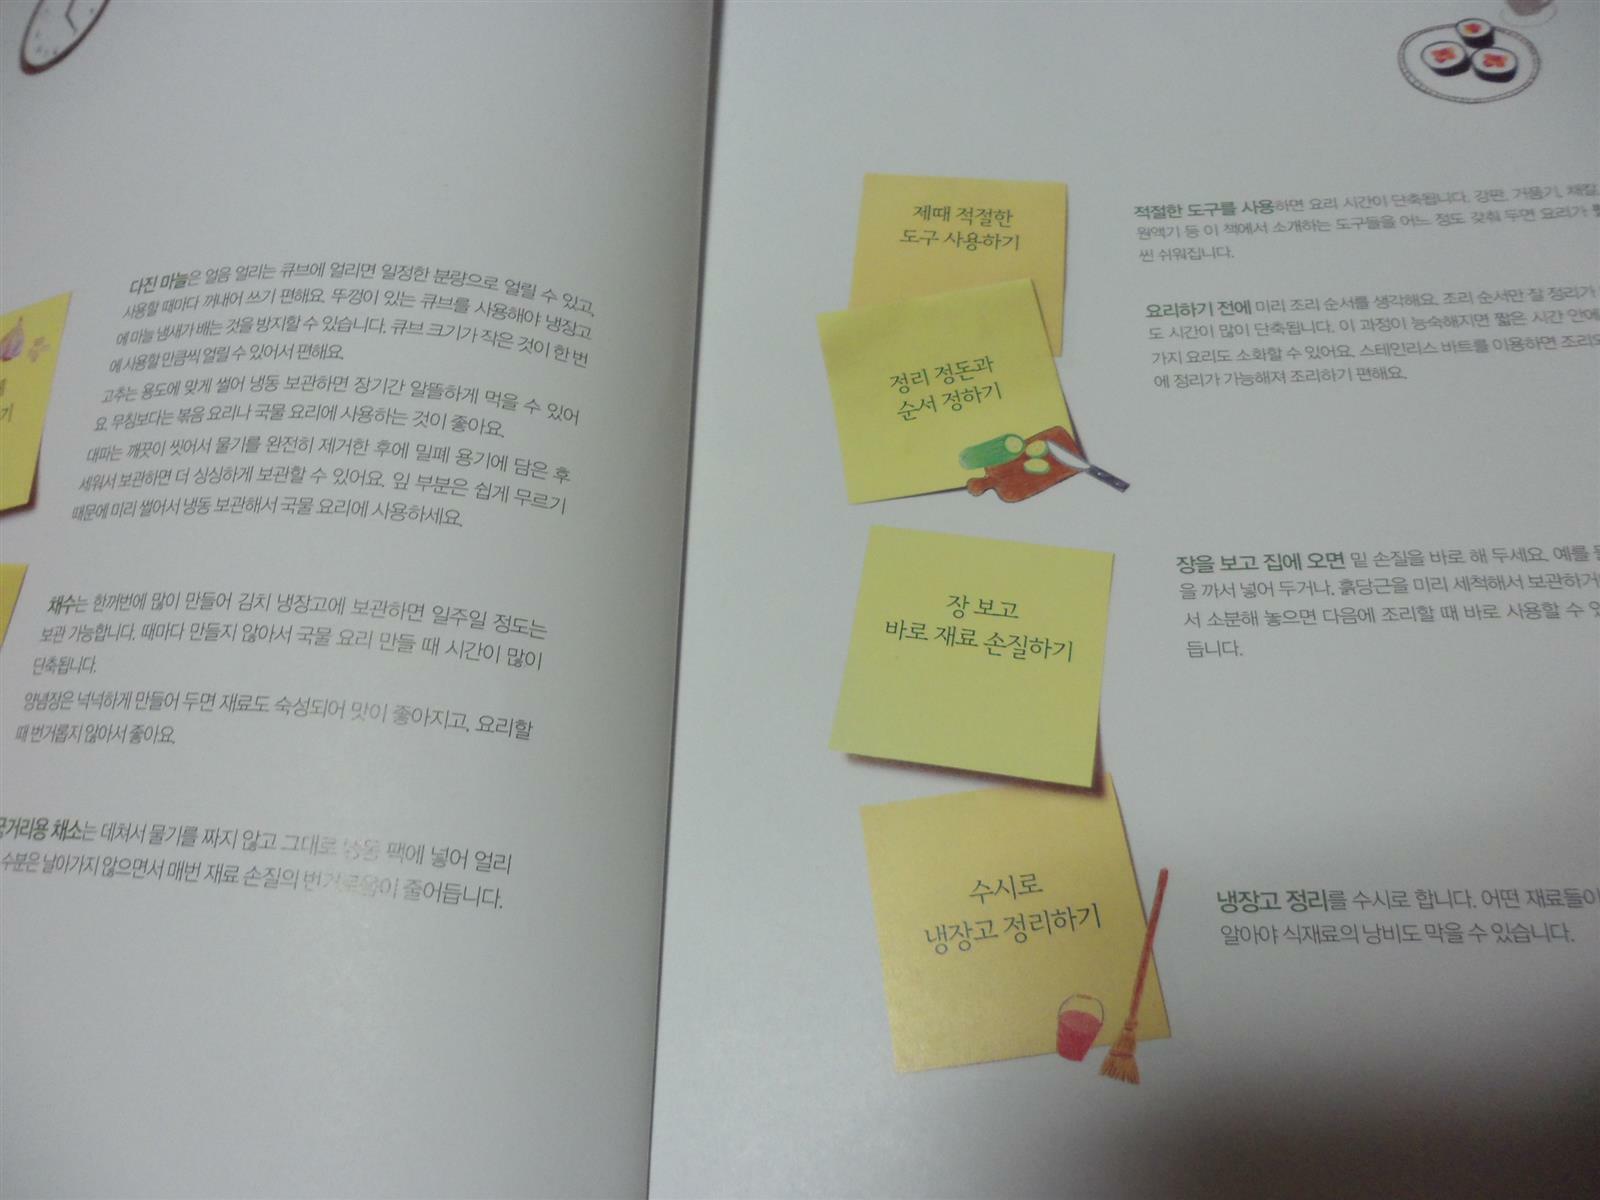 기
다진 마늘은 얼음 얼리는 큐브에 얼리면 일정한 분량으로 얼릴 수 있고,
사용할 때마다 꺼내어 쓰기 편해요. 뚜껑이 있는 큐브를 사용해야 냉장고
에 마늘 냄새가 배는 것을 방지할 수 있습니다. 큐브 크기가 작은 것이 한 번
에 사용할 만큼씩 얼릴 수 있어서 편해요.
고추는 용도에 맞게 썰어 냉동 보관하면 장기간 알뜰하게 먹을 수 있어
요. 무침보다는 볶음 요리나 국물 요리에 사용하는 것이 좋아요.
대파는 깨끗이 씻어서 물기를 완전히 제거한 후에 밀폐 용기에 담은 후
세워서 보관하면 더 싱싱하게 보관할 수 있어요. 잎 부분은 쉽게 무르기
때문에 미리 썰어서 냉동 보관해서 국물 요리에 사용하세요.
채수는 한꺼번에 많이 만들어 김치 냉장고에 보관하면 일주일 정도는
보관 가능합니다. 때마다 만들지 않아서 국물 요리 만들 때 시간이 많이
단축됩니다.
양념장은 넉넉하게 만들어 두면 재료도 숙성되어 맛이 좋아지고, 요리할
때 번거롭지 않아서 좋아요.
국거리용 채소는 데쳐서 물기를 짜지 않고 그대로 냉동 팩에 넣어 얼리
수분은 날아가지 않으면서 매번 재료 손질의 번거로움이 줄어듭니다.
제때 적절한
도구 사용하기
적절한 도구를 사용하면 요리 시간이 단축됩니다. 강판, 거품기, 채칼,
원액기 등 이 책에서 소개하는 도구들을 어느 정도 갖춰 두면 요리가
씬 쉬워집니다.
정리 정돈과
순서 정하기
요리하기 전에 미리 조리 순서를 생각해요. 조리 순서만 잘 정리가
도 시간이 많이 단축됩니다. 이 과정이 능숙해지면 짧은 시간 안에
가지 요리도 소화할 수 있어요. 스테인리스 바트를 이용하면 조리도
에 정리가 가능해져 조리하기 편해요.
장 보고
바로 재료 손질하기
장을 보고 집에 오면 밑 손질을 바로 해 두세요. 예를
을 까서 넣어 두거나, 흙당근을 미리 세척해서 보관하거
서 소분해 놓으면 다음에 조리할 때 바로 사용할 수
듭니다.
수시로
냉장고 정리하기
냉장고 정리를 수시로 합니다. 어떤 재료들이
알아야 식재료의 낭비도 막을 수 있습니다.